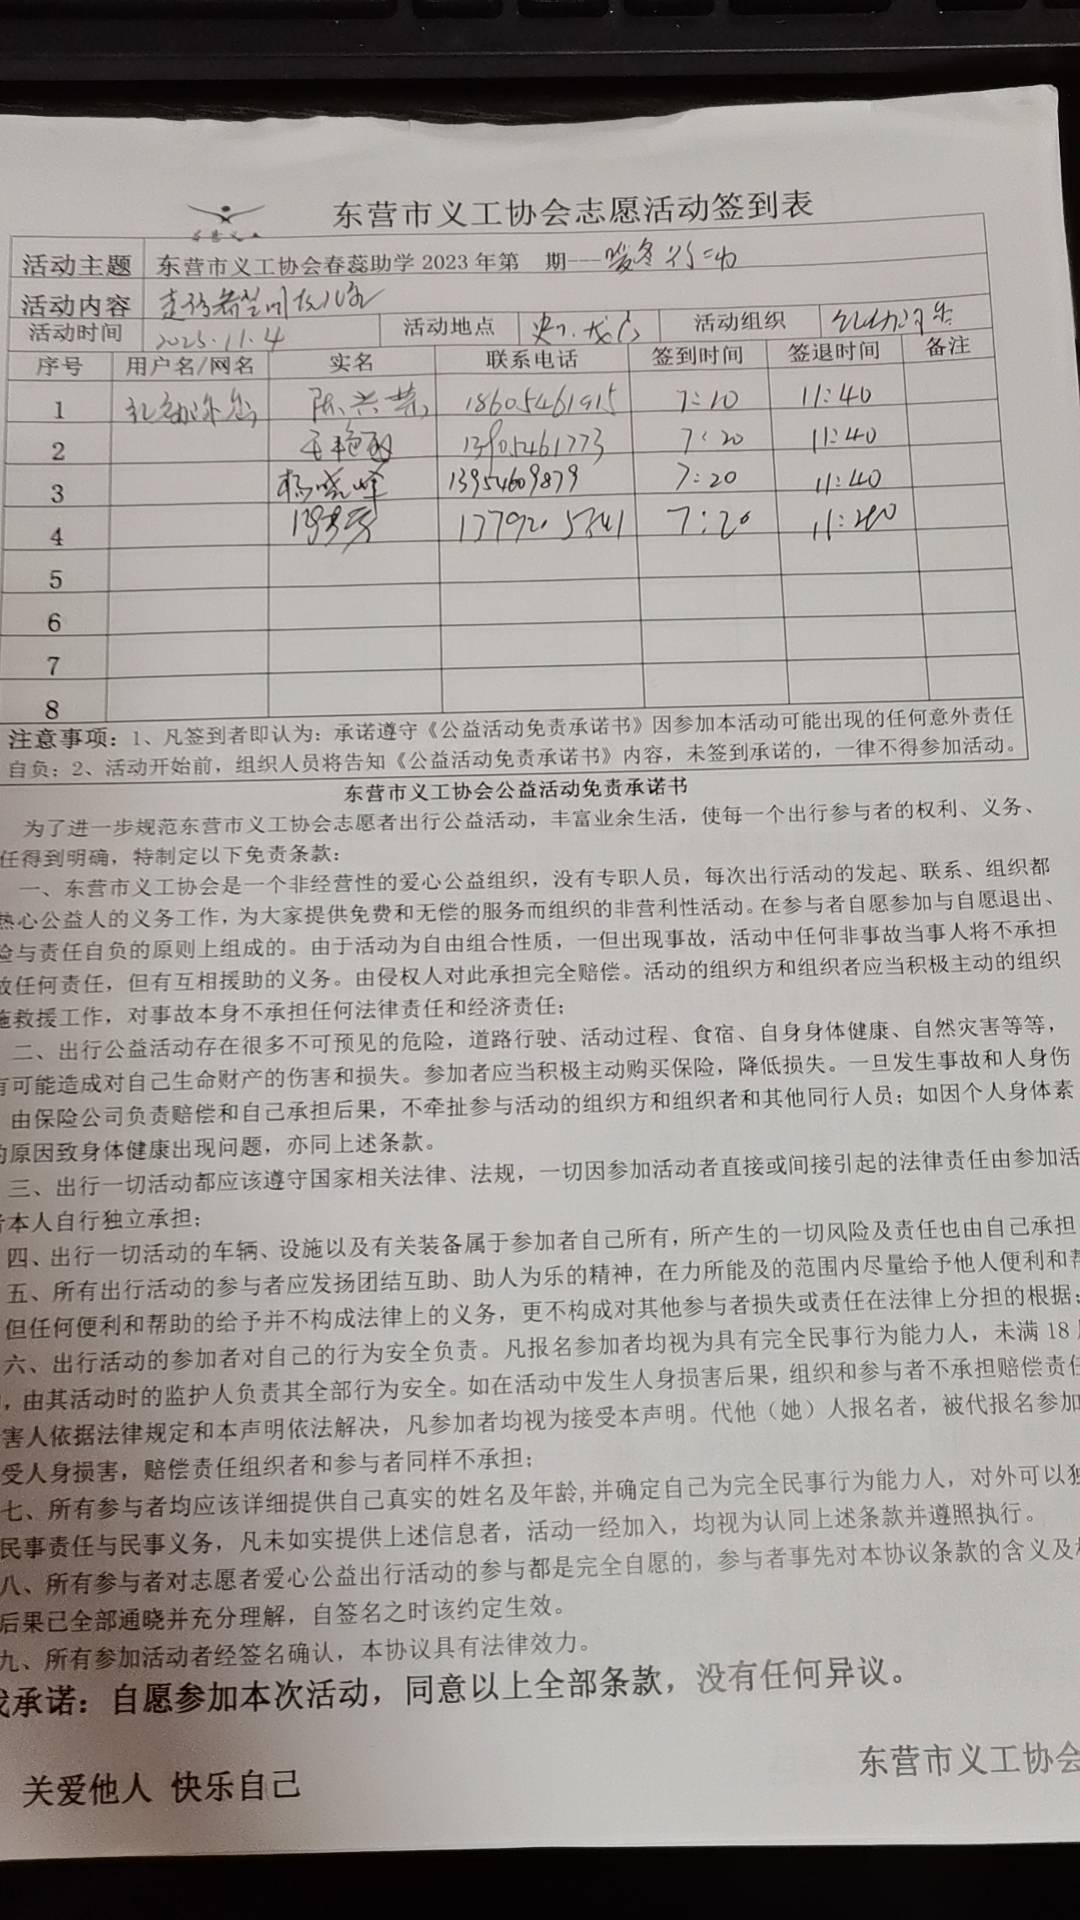 东营市义工协会志愿活动签到表
活动主题 东营市义工协会春蕊助学 2023 年第 期---暖冬行动
活动内容
活动时间 2023.11.4 活动地点 活动组织
序号 用户名/网名 实名 联系电话 签到时间 签退时间 备注
1 陈兴荣 18605461915 7:10 11:40
2 王艳 13905461773 7:20 11:40
3 杨晓峰 13954609879 7:20 11:40
4 7:20 11:40
5
6
7
8
注意事项：1、凡签到者即认为：承诺遵守《公益活动免责承诺书》因参加本活动可能出现的任何意外责任
自负：2、活动开始前，组织人员将告知《公益活动免责承诺书》内容，未签到承诺的，一律不得参加活动。
东营市义工协会公益活动免责承诺书
为了进一步规范东营市义工协会志愿者出行公益活动，丰富业余生活，使每一个出行参与者的权利、义务、
任得到明确，特制定以下免责条款：
一、东营市义工协会是一个非经营性的爱心公益组织，没有专职人员，每次出行活动的发起、联系、组织都
热心公益人的义务工作，为大家提供免费和无偿的服务而组织的非营利性活动。在参与者自愿参加与自愿退出、
险与责任自负的原则上组成的。由于活动为自由组合性质，一但出现事故，活动中任何非事故当事人将不承担
故任何责任，但有互相援助的义务。由侵权人对此承担完全赔偿。活动的组织方和组织者应当积极主动的组织
施救援工作，对事故本身不承担任何法律责任和经济责任；
二、出行公益活动存在很多不可预见的危险，道路行驶、活动过程、食宿、自身身体健康、自然灾害等等，
有可能造成对自己生命财产的伤害和损失。参加者应当积极主动购买保险，降低损失。一旦发生事故和人身伤
由保险公司负责赔偿和自己承担后果，不牵扯参与活动的组织方和组织者和其他同行人员；如因个人身体素
的原因致身体健康出现问题，亦同上述条款。
三、出行一切活动都应该遵守国家相关法律、法规，一切因参加活动者直接或间接引起的法律责任由参加活
者本人自行独立承担；
四、出行一切活动的车辆、设施以及有关装备属于参加者自己所有，所产生的一切风险及责任也由自己承担
五、所有出行活动的参与者应发扬团结互助、助人为乐的精神，在力所能及的范围内尽量给予他人便利和帮
但任何便利和帮助的给予并不构成法律上的义务，更不构成对其他参与者损失或责任在法律上分担的根据；
六、出行活动的参加者对自己的行为安全负责。凡报名参加者均视为具有完全民事行为能力人，未满 18 周
，由其活动时的监护人负责其全部行为安全。如在活动中发生人身损害后果，组织和参与者不承担赔偿责任
害人依据法律规定和本声明依法解决，凡参加者均视为接受本声明。代他（她）人报名者，被代报名参加
受人身损害，赔偿责任组织者和参与者同样不承担；
七、所有参与者均应该详细提供自己真实的姓名及年龄,并确定自己为完全民事行为能力人，对外可以独
民事责任与民事义务，凡未如实提供上述信息者，活动一经加入，均视为认同上述条款并遵照执行。
八、所有参与者对志愿者爱心公益出行活动的参与都是完全自愿的，参与者事先对本协议条款的含义及
后果已全部通晓并充分理解，自签名之时该约定生效。
九、所有参加活动者经签名确认，本协议具有法律效力。
我承诺：自愿参加本次活动，同意以上全部条款，没有任何异议。
东营市义工协会
关爱他人 快乐自己